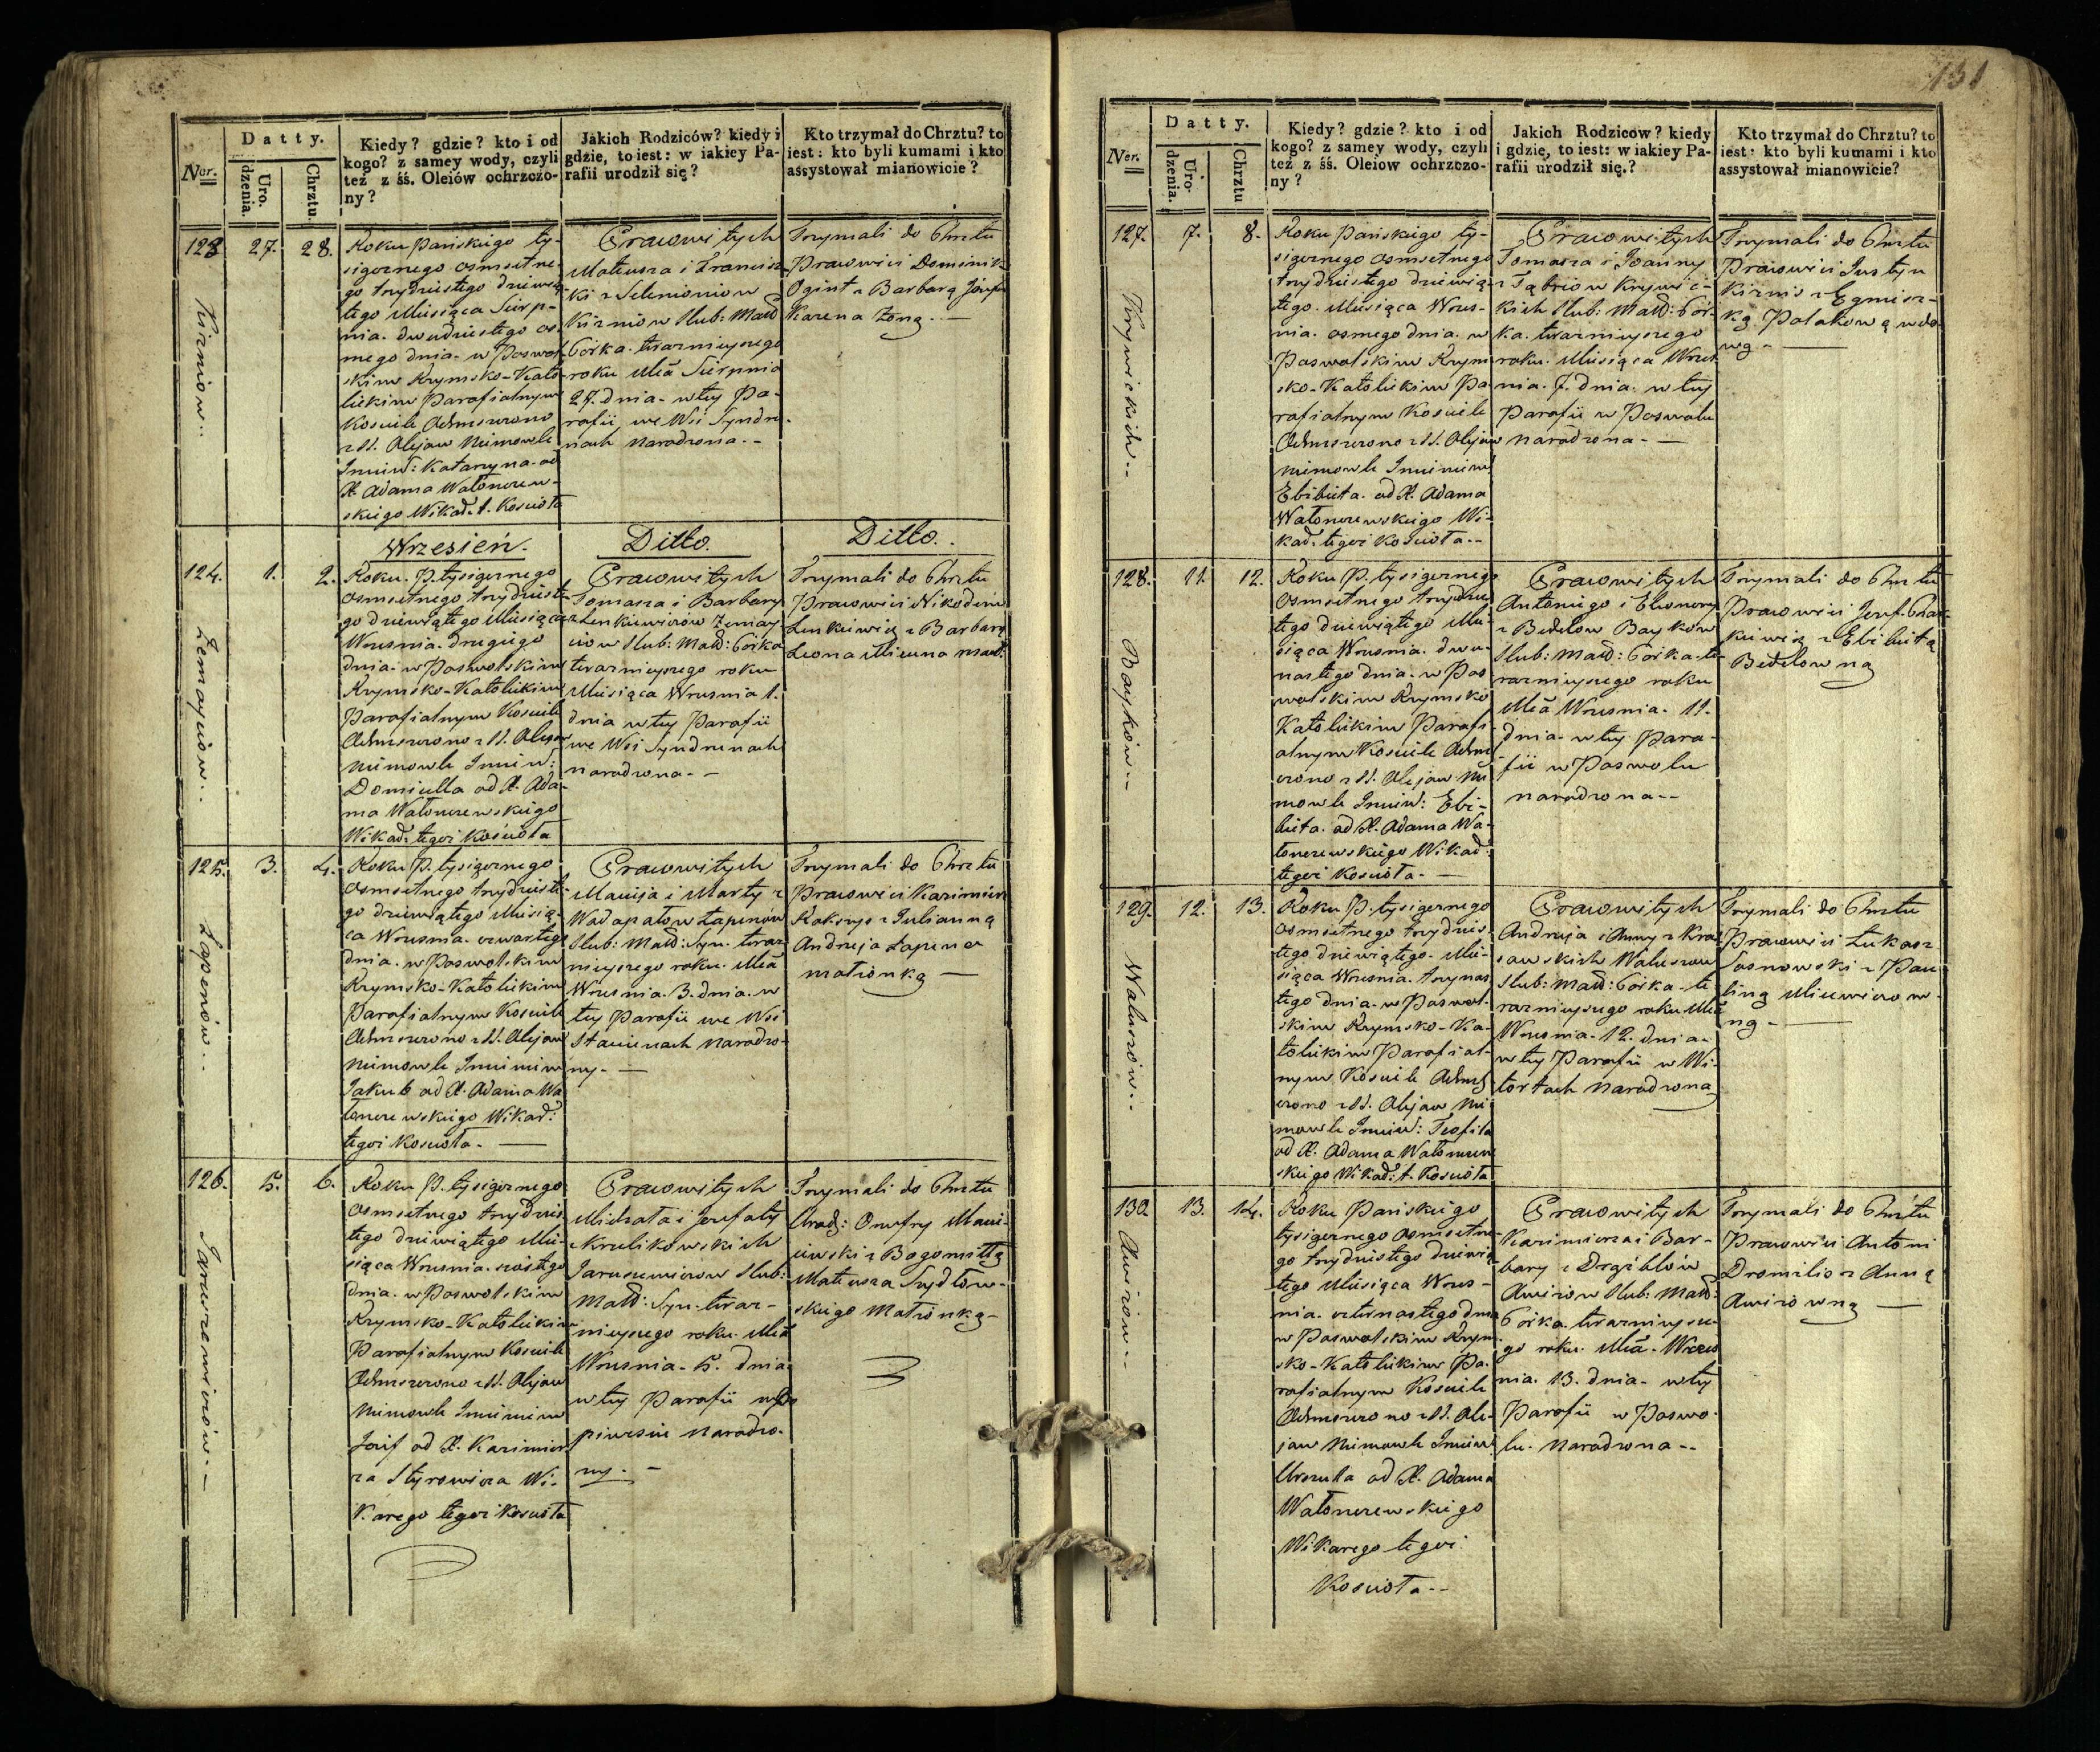 131
Datty.
Ner.
Uro-
dzenia.
Chrztu.
Kiedy? gdzie? kto i od
kogo? z samey wody, czyli
też z śś. Oleiów ochrzczo-
ny?
Jakich Rodziców? kiedy i
gdzie, to iest: w iakiey Pa-
rafii urodził się?
Kto trzymał do Chrztu? to
iest: kto byli kumami i kto
assystował mianowicie?
123
27.
28.
Kirniow
Roku Pańskiego ty-
siącznego osmsetne-
go trzydziestego dziewią-
tego Miesiąca Sierp-
nia dwudziestego os-
mego dnia w Poswol-
skim Rzymsko-Kato-
lickim Parafialnym
Kościele Ochrszczono
z SS. Olejow Niemowle
Imie: Katarzyna od
X. Adama Wałonczew-
skiego Wikar. t. Kościoła
Prawowitych
Mateusza i Francisz-
ki z
Kirniow Slub: Małż
Córka terazniejszego
roku Mca Sierpnia
27. dnia w tej Pa-
rafii we Wsi Syndry-
nach narodzona.
Trzymali do Chrztu
Prawowici Dominik
Ogint z Barbarą Józefa
Karena Żoną.
Wrzesień.
Ditto.
Ditto.
124.
1.
2.
Żemayciow
Roku P. tysiącznego
osmsetnego trzydzieste-
go dziewiątego Miesiąca
Września drugiego
dnia w Poswolskim
Rzymsko-Katolickim
Parafialnym Kościele
Ochrszczono z SS. Olejow
Niemowle Imie:
Domicella od X. Ada-
ma Wałonczewskiego
Wikar. tegoż Kościoła
Prawowitych
Tomasza i Barbary
z Lenkiewiczów Żemay-
ciow Slub: Małż: Córka
terazniejszego roku
Miesiąca Września 1.
dnia w tej Parafii
we Wsi Syndrynach
narodzona.
Trzymali do Chrztu
Prawowici Nikodem
Lenkiewicz z Barbarą
Leona
125.
3.
4.
Łapenów
Roku P. tysiącznego
osmsetnego trzydzieste-
go dziewiątego Miesią-
ca Września czwartego
dnia w Poswolskim
Rzymsko-Katolickim
Parafialnym Kościele
Ochrszczono z SS. Olejow
Niemowle Imieniem
Jakub od X. Adama Wa-
łonczewskiego Wikar:
tegoż Kościoła.
Prawowitych
Macieja i Marty z
Wadapałow Łapenów
Slub: Małż: Syn teraz-
niejszego roku Mca
Września 3. dnia w
tej Parafii we Wsi
Staciunach narodzo-
ny.
Trzymali do Chrztu
Prawowici Kazimierz
z Julianną
Andrzeja Łapena
małżonką
126.
5.
6.
Jaruszewiczów
Roku P. tysiącznego
osmsetnego trzydzies-
tego dziewiątego Mie-
siąca Września szóstego
dnia w Poswolskim
Rzymsko-Katolickim
Parafialnym Kościele
Ochrszczono z SS. Olejow
Niemowle Imieniem
Józef od X. Kazimie-
rza Styrowicza Wi-
karego tegoż Kościoła
Prawowitych
Michała i Jozefaty
z Krulikowskich
Jaruszewiczow Slub:
Małż: Syn teraz-
niejszego roku Mca
Września 5. dnia
w tej Parafii w
narodzo-
ny.
Trzymali do Chrztu
Urodz: Onufry Maci-
iewski z Bogomiłłą
Mateusza Szydłow-
skiego Małżonką
Datty.
Ner.
Uro-
dzenia.
Chrztu
Kiedy? gdzie? kto i od
kogo? z samey wody, czyli
też z śś. Oleiow ochrzczo-
ny?
Jakich Rodzicow? kiedy
i gdzię, to iest: w iakiey Pa-
rafii urodził się.?
Kto trzymał do Chrztu? to
iest: kto byli kumami i kto
assystował mianowicie?
127.
7.
8.
Krywickich
Roku Pańskiego ty-
siącznego osmsetnego
trzydziestego dziewią-
tego Miesiąca Wrześ-
nia osmego dnia w
Poswolskim Rzym-
sko-Katolickim Pa-
rafialnym Kościele
Ochrszczono z SS. Olejow
Niemowle Imieniem
Elżbieta od X. Adama
Wałonczewskiego Wi-
kar. tegoż Kościoła.
Prawowitych
Tomasza i Joanny
z Krywic-
kich Slub: Małż: Cór-
ka terazniejszego
roku Miesiąca Wrześ-
nia 7. dnia w tej
Parafii w Poswolu
narodzona.
Trzymali do Chrztu
Prawowici Justyn
Kirnis z
Polakową wdo-
wą
128.
11.
12.
Baykow
Roku P. tysiącznego
osmsetnego trzydzies-
tego dziewiątego Mie-
siąca Września dwu-
nastego dnia w Pos-
wolskim Rzymsko
Katolickim Parafi-
alnym Kościele Ochrsz-
czono z SS. Olejow Nie-
mowle Imie: Elż-
bieta od X. Adama Wa-
łonczewskiego Wikar:
tegoż Kościoła.
Prawowitych
Antoniego i Eleonory
z Bedelow Baykow
Slub: Małż: Córka te-
razniejszego roku
Mca Września 11.
dnia w tej Para-
fii w Poswolu
narodzona
Trzymali do Chrztu
Prawowici Jozef
z Elżbietą
Bedelowną
129.
12.
13.
Waluszow
Roku P. tysiącznego
osmsetnego trzydzies-
tego dziewiątego Mie-
siąca Września trzynas-
tego dnia w Poswol-
skim Rzymsko-Ka-
tolickim Parafial-
nym Kościele Ochrsz-
czono z SS. Olejow Nie-
mowle Imie: Teofila
od X. Adama Wałonczew-
skiego Wikar: t. Kościoła
Prawowitych
Andrzeja i Anny z Kras-
sawskich Waluszow
Slub: Małż: Córka te-
razniejszego roku Mca
Września 12. dnia
w tej Parafii w Wi-
tortach narodzona
Trzymali do Chrztu
Prawowici Łukasz
Sosnowski z Pau-
liną Miciewiczow-
ną
130
13.
14.
Awizow
Roku Pańskiego
tysiącznego osmsetne-
go trzydziestego dziewią-
tego Miesiąca Wrześ-
nia czternastego dnia
w Poswolskim Rzym-
sko-Katolickim Pa-
rafialnym Kościele
Ochrszczono z SS. Ole-
jow Niemowle Imie:
Urszula od X. Adama
Wałonczewskiego
Wikarego tegoż
Kościoła
Prawowitych
Kazimierza i Bar-
bary z
Awizow Slub: Małż:
Córka terazniejsze-
go roku Mca Wrześ-
nia 13. dnia w tej
Parafii w Poswo-
lu narodzona
Trzymali do Chrztu
Prawowici Antoni
z Anną
Awizowną